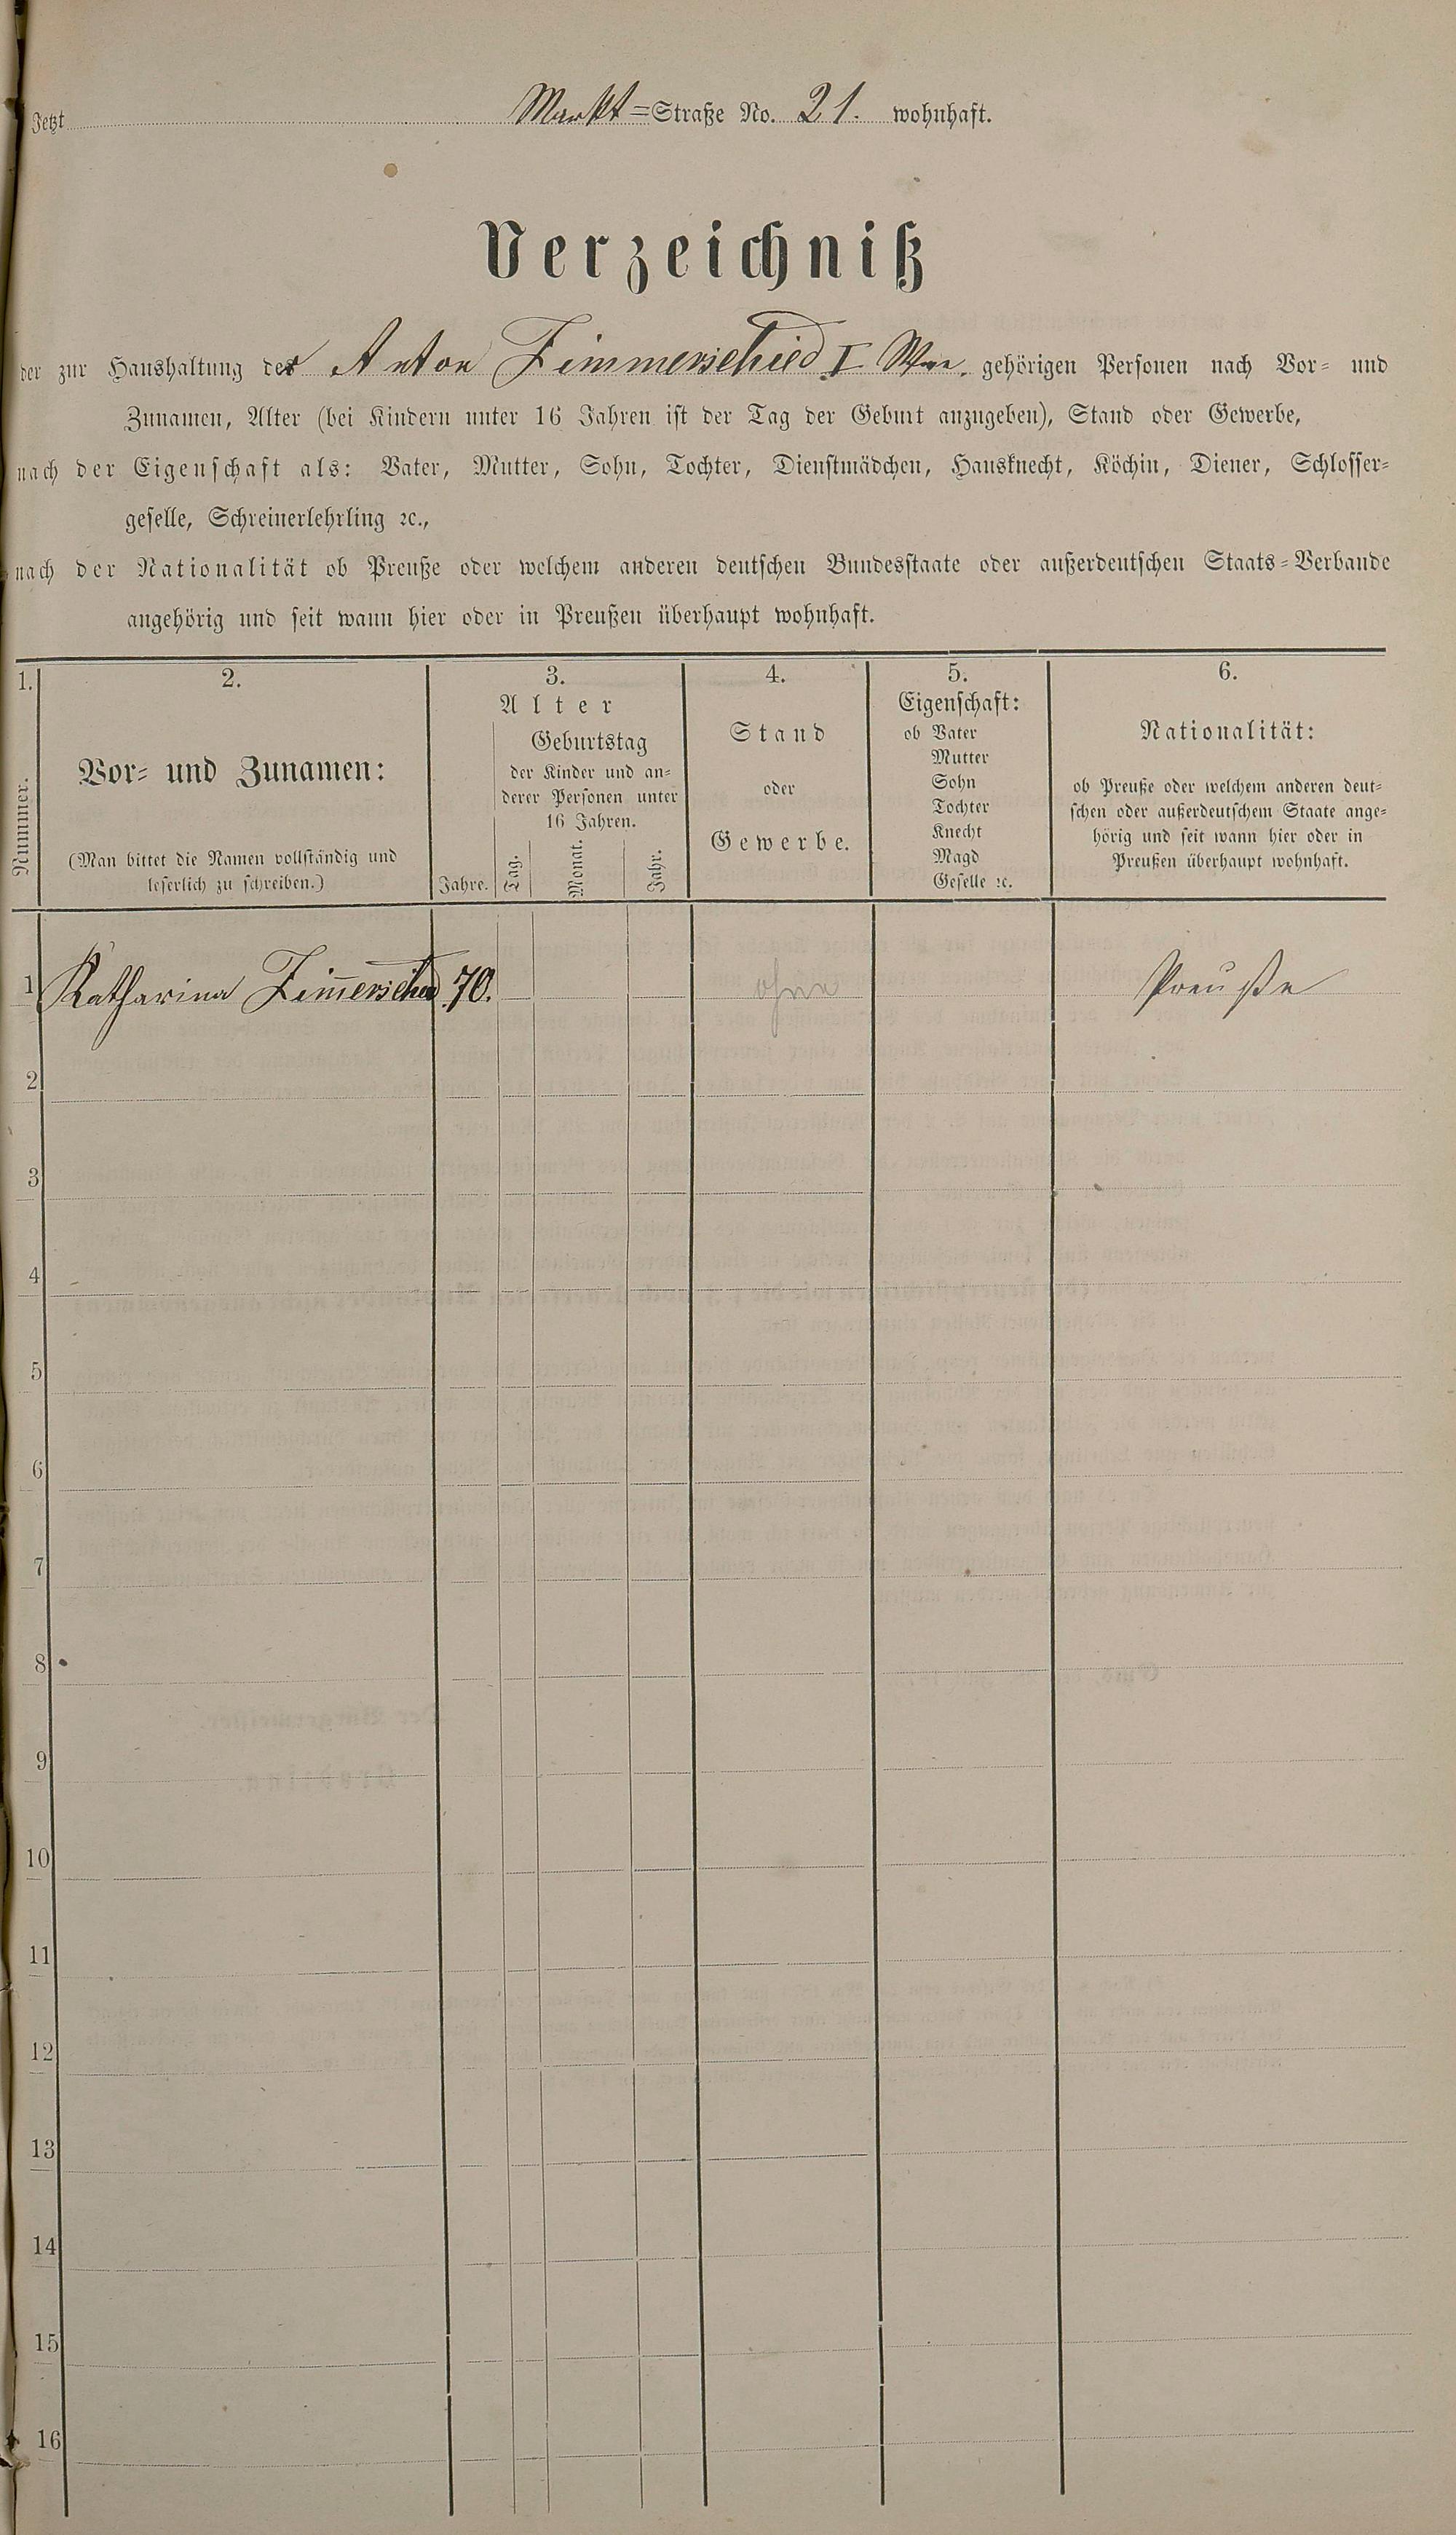 Jetzt Markt=Straße No. 21. wohnhaft.
Verzeichniß
der zur Haushaltung der Anton Zimmerschied I Wwe. gehörigen Personen nach Vor= und
Zunamen, Alter (bei Kindern unter 16 Jahren ist der Tag der Geburt anzugeben), Stand oder Gewerbe,
nach der Eigenschaft als: Vater, Mutter, Sohn, Tochter, Dienstmädchen, Hausknecht, Köchin, Diener, Schlosser=
geselle, Schreinerlehrling ꝛc.,
nach der Nationalität ob Preuße oder welchem anderen deutschen Bundesstaate oder außerdeutschen Staats=Verbande
angehörig und seit wann hier oder in Preußen überhaupt wohnhaft.
1.
Nummer.
2.
Vor= und Zunamen:
(Man bittet die Namen vollständig und
leserlich zu schreiben.)
3.
Alter
Jahre.
Geburtstag
der Kinder und an=
derer Personen unter
16 Jahren.
Tag.
Monat.
Jahr.
4.
Stand
oder
Gewerbe.
5.
Eigenschaft:
ob Vater
Mutter
Sohn
Tochter
Knecht
Magd
Geselle ꝛc.
6.
Nationalität:
ob Preuße oder welchem anderen deut=
schen oder außerdeutschem Staate ange=
hörig und seit wann hier oder in
Preußen überhaupt wohnhaft.
1 Katharina Zim̅erschied 70. ohne Preuße
2
3
4
5
6
7
8
9
10
11
12
13
14
15
16